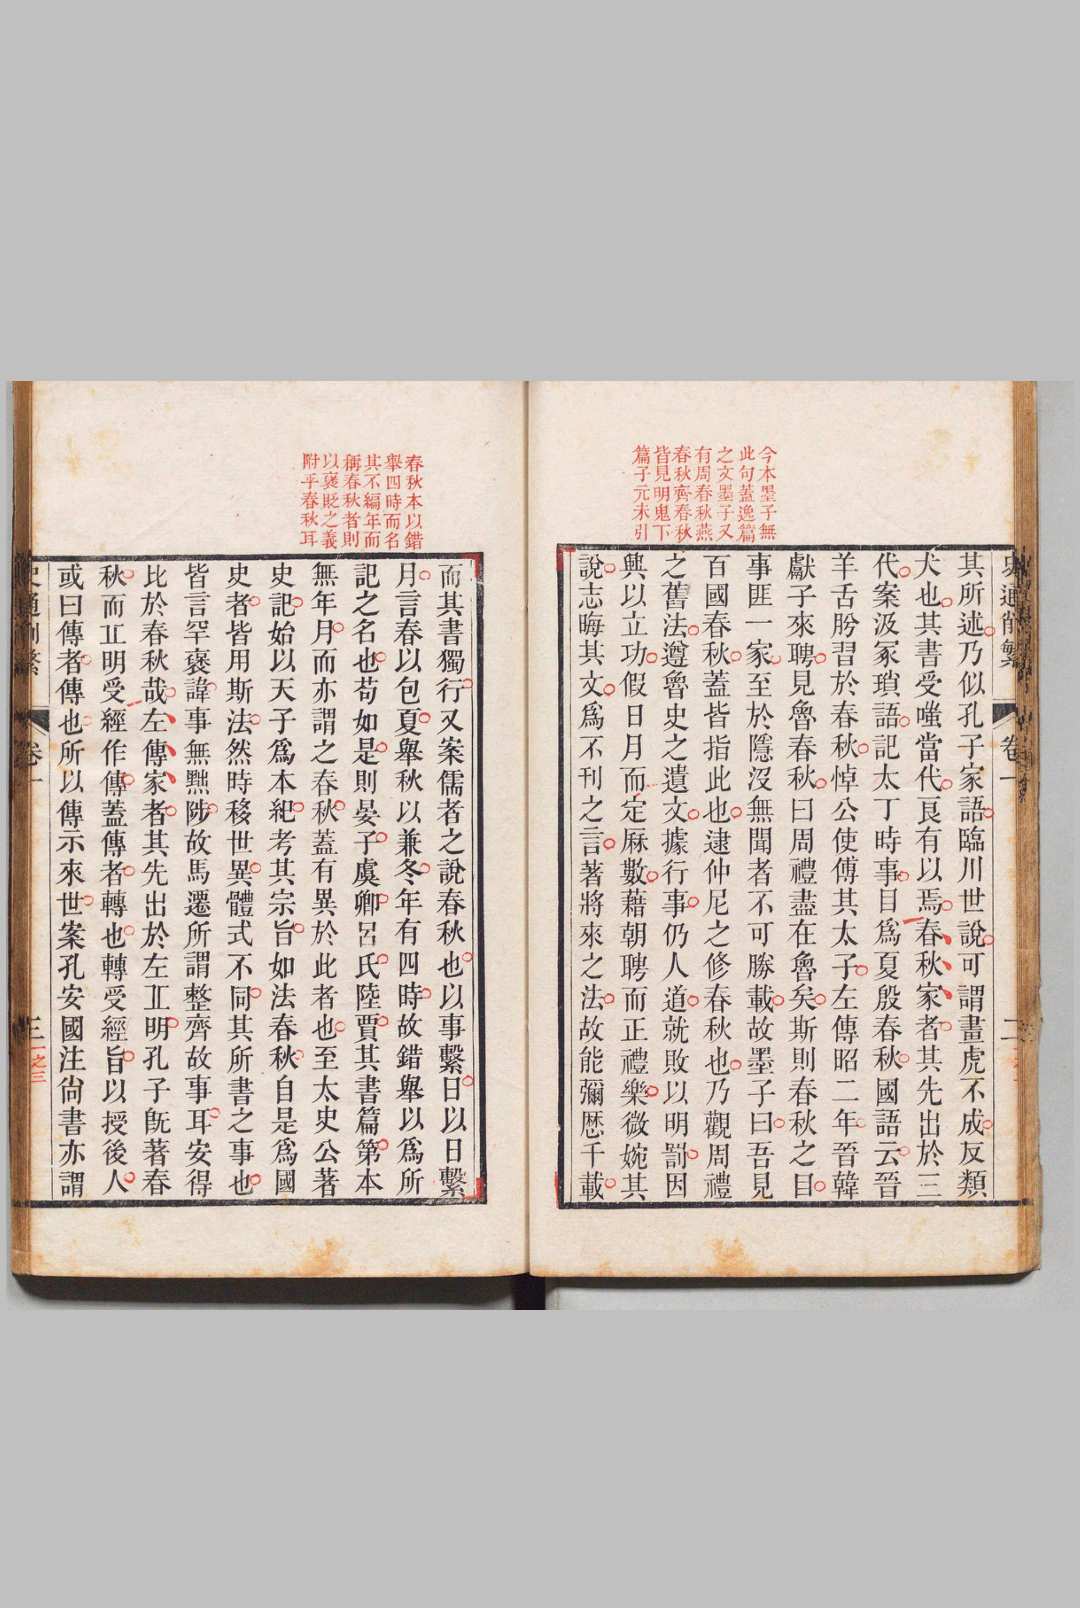 今本墨子無
此句蓋逸篇
之文墨子又
有周春秋燕
春秋齊春秋
皆見明鬼下
篇子元未引
史通削繁 卷一 二
其所述乃似孔子家語臨川世說可謂畫虎不成反類
犬也其書受嗤當代良有以焉春秋家者其先出於三
代案汲冢瑣語記太丁時事目爲夏殷春秋國語云晉
羊舌肸習於春秋悼公使傅其太子左傳昭二年晉韓
獻子來聘見魯春秋曰周禮盡在魯矣斯則春秋之目
事匪一家至於隱沒無聞者不可勝載故墨子曰吾見
百國春秋蓋皆指此也逮仲尼之修春秋也乃觀周禮
之舊法遵魯史之遺文據行事仍人道就敗以明罰因
興以立功假日月而定厤數藉朝聘而正禮樂微婉其
說志晦其文爲不刊之言著將來之法故能彌歷千載
春秋本以錯
舉四時而名
其不編年而
稱春秋者則
以襃貶之義
附乎春秋耳
而其書獨行又案儒者之說春秋也以事繫日以日繫
月言春以包夏舉秋以兼冬年有四時故錯舉以爲所
記之名也苟如是則晏子虞卿呂氏陸賈其書篇第本
無年月而亦謂之春秋蓋有異於此者也至太史公著
史記始以天子爲本紀考其宗旨如法春秋自是爲國
史者皆用斯法然時移世異體式不同其所書之事也
皆言罕褒諱事無黜陟故馬遷所謂整齊故事耳安得
比於春秋哉左傳家者其先出於左㐀明孔子旣著春
秋而㐀明受經作傳蓋傳者轉也轉受經旨以授後人
或曰傳者傳也所以傳示來世案孔安國注尙書亦謂
史通削繁 卷一 三
一之三